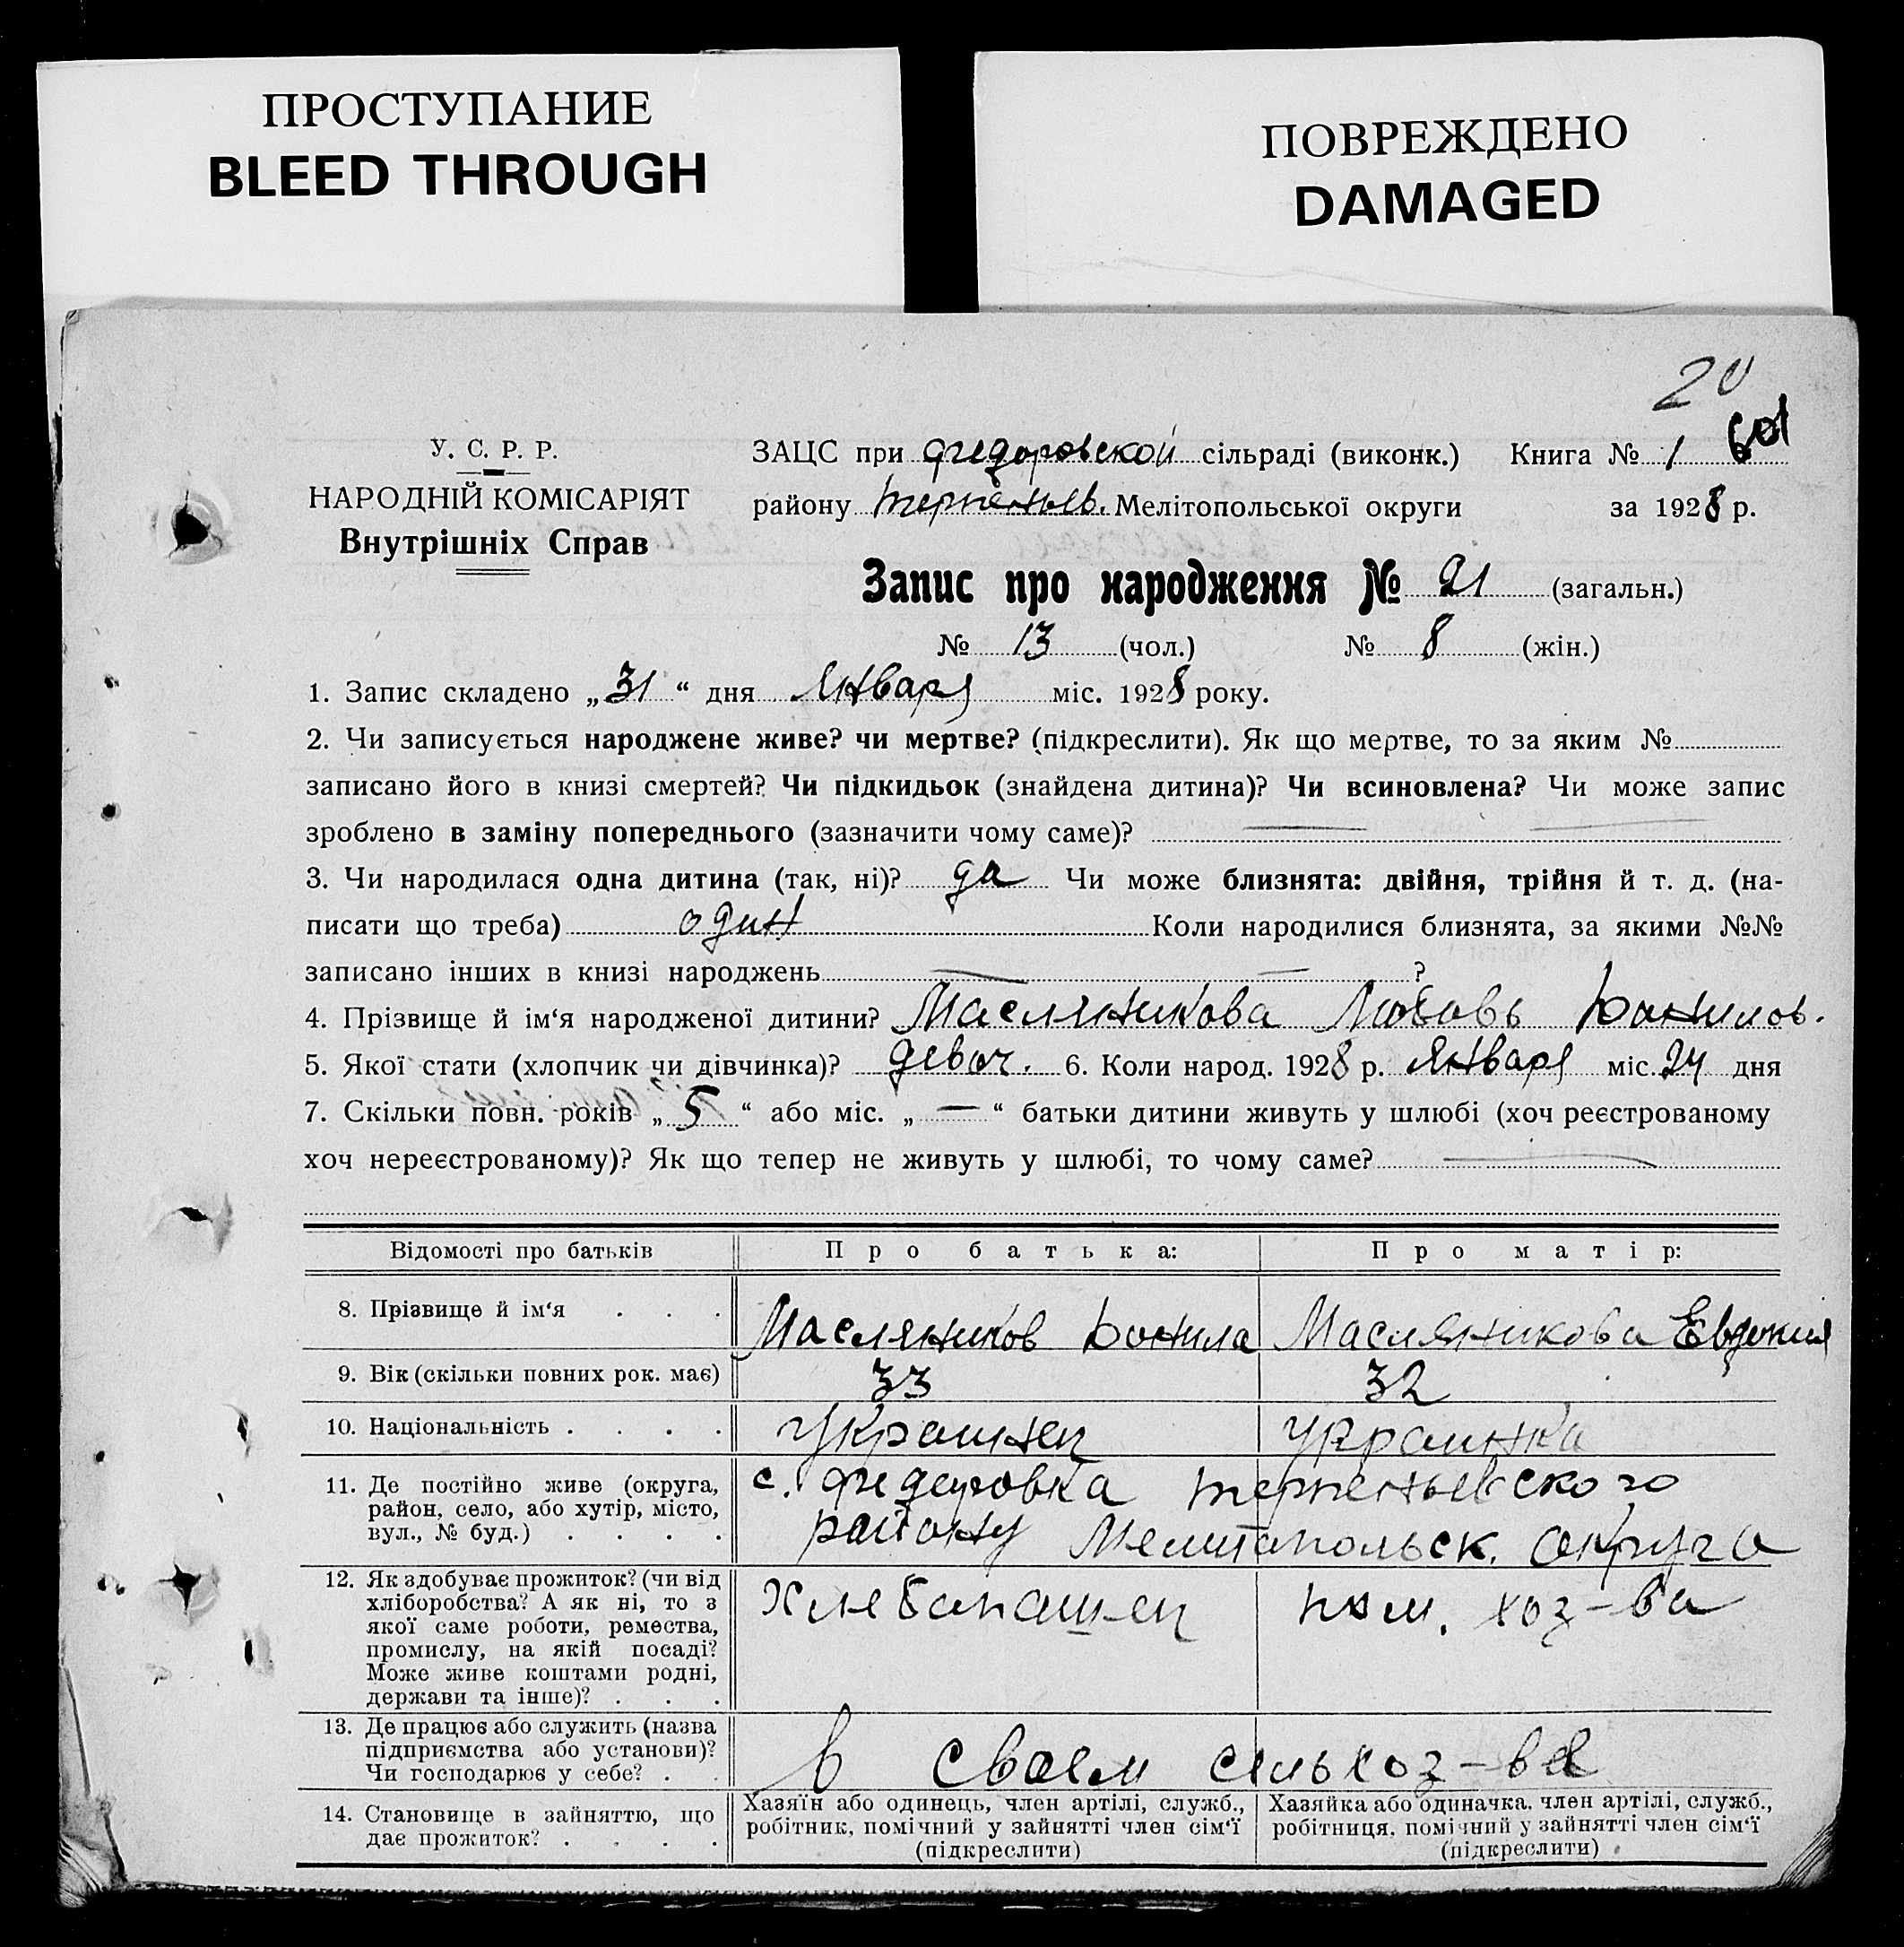 ПРОСТУПАНИЕ
BLEED THROUGH
ПОВРЕЖДЕНО
DAMAGED
20
601
У. С. Р. Р.
НАРОДНІЙ КОМІСАРІЯТ
Внутрішніх Справ
ЗАЦС при Федоровской сільраді (виконк.) Книга № 1
району Терпеньев. Мелітопольської округи за 1928 р.
Запис про народження № 21 (загальн.)
№ 13 (чол.) № 8 (жін.)
1. Запис складено „31“ дня Января міс. 1928 року.
2. Чи записується народжене живе? чи мертве? (підкреслити). Як що мертве, то за яким №
записано його в книзі смертей? Чи підкидьок (знайдена дитина)? Чи всиновлена? Чи може запис
зроблено в заміну попереднього (зазначити чому саме)? —
3. Чи народилася одна дитина (так, ні)? да Чи може близнята: двійня, трійня й т. д. (на-
писати що треба) один Коли народилися близнята, за якими №№
записано інших в книзі народжень — — ?
4. Прізвище й ім‘я народженої дитини? Масляникова Любовь Данилов.
5. Якої стати (хлопчик чи дівчинка)? девоч. 6. Коли народ. 1928 р. Января міс. 24 дня
7. Скільки повн. років „5“ або міс. „—“ батьки дитини живуть у шлюбі (хоч реєстрованому
хоч нереєстрованому)? Як що тепер не живуть у шлюбі, то чому саме? —
Відомості про батьків Про батька: Про матір:
8. Прізвище й ім‘я . . . Масляников Данила Масляникова Евдокия
9. Вік (скільки повних рок. має) 33 32
10. Національність . . . . Украинец Украинка
11. Де постійно живе (округа, с. Федоровка Терпеньевского
район, село, або хутір, місто, району Мелитопольск. округа
вул., № буд.) . . . .
12. Як здобуває прожиток? (чи від Хлебопашец пом. хоз-ва
хліборобства? А як ні, то з
якої саме роботи, ремества,
промислу, на якій посаді?
Може живе коштами родні,
держави та інше)? . . .
13. Де працює або служить (назва
підприємства або установи)? в своем сельхоз-ве
Чи господарює у себе? . .
14. Становище в зайняттю, що
дає прожиток? . . . .
Хазяїн або одинець, член артілі, служб.,
робітник, помічний у зайнятті член сім‘ї
(підкреслити)
Хазяйка або одиначка, член артілі, служб.,
робітниця, помічний у зайнятті член сім‘ї
(підкреслити)